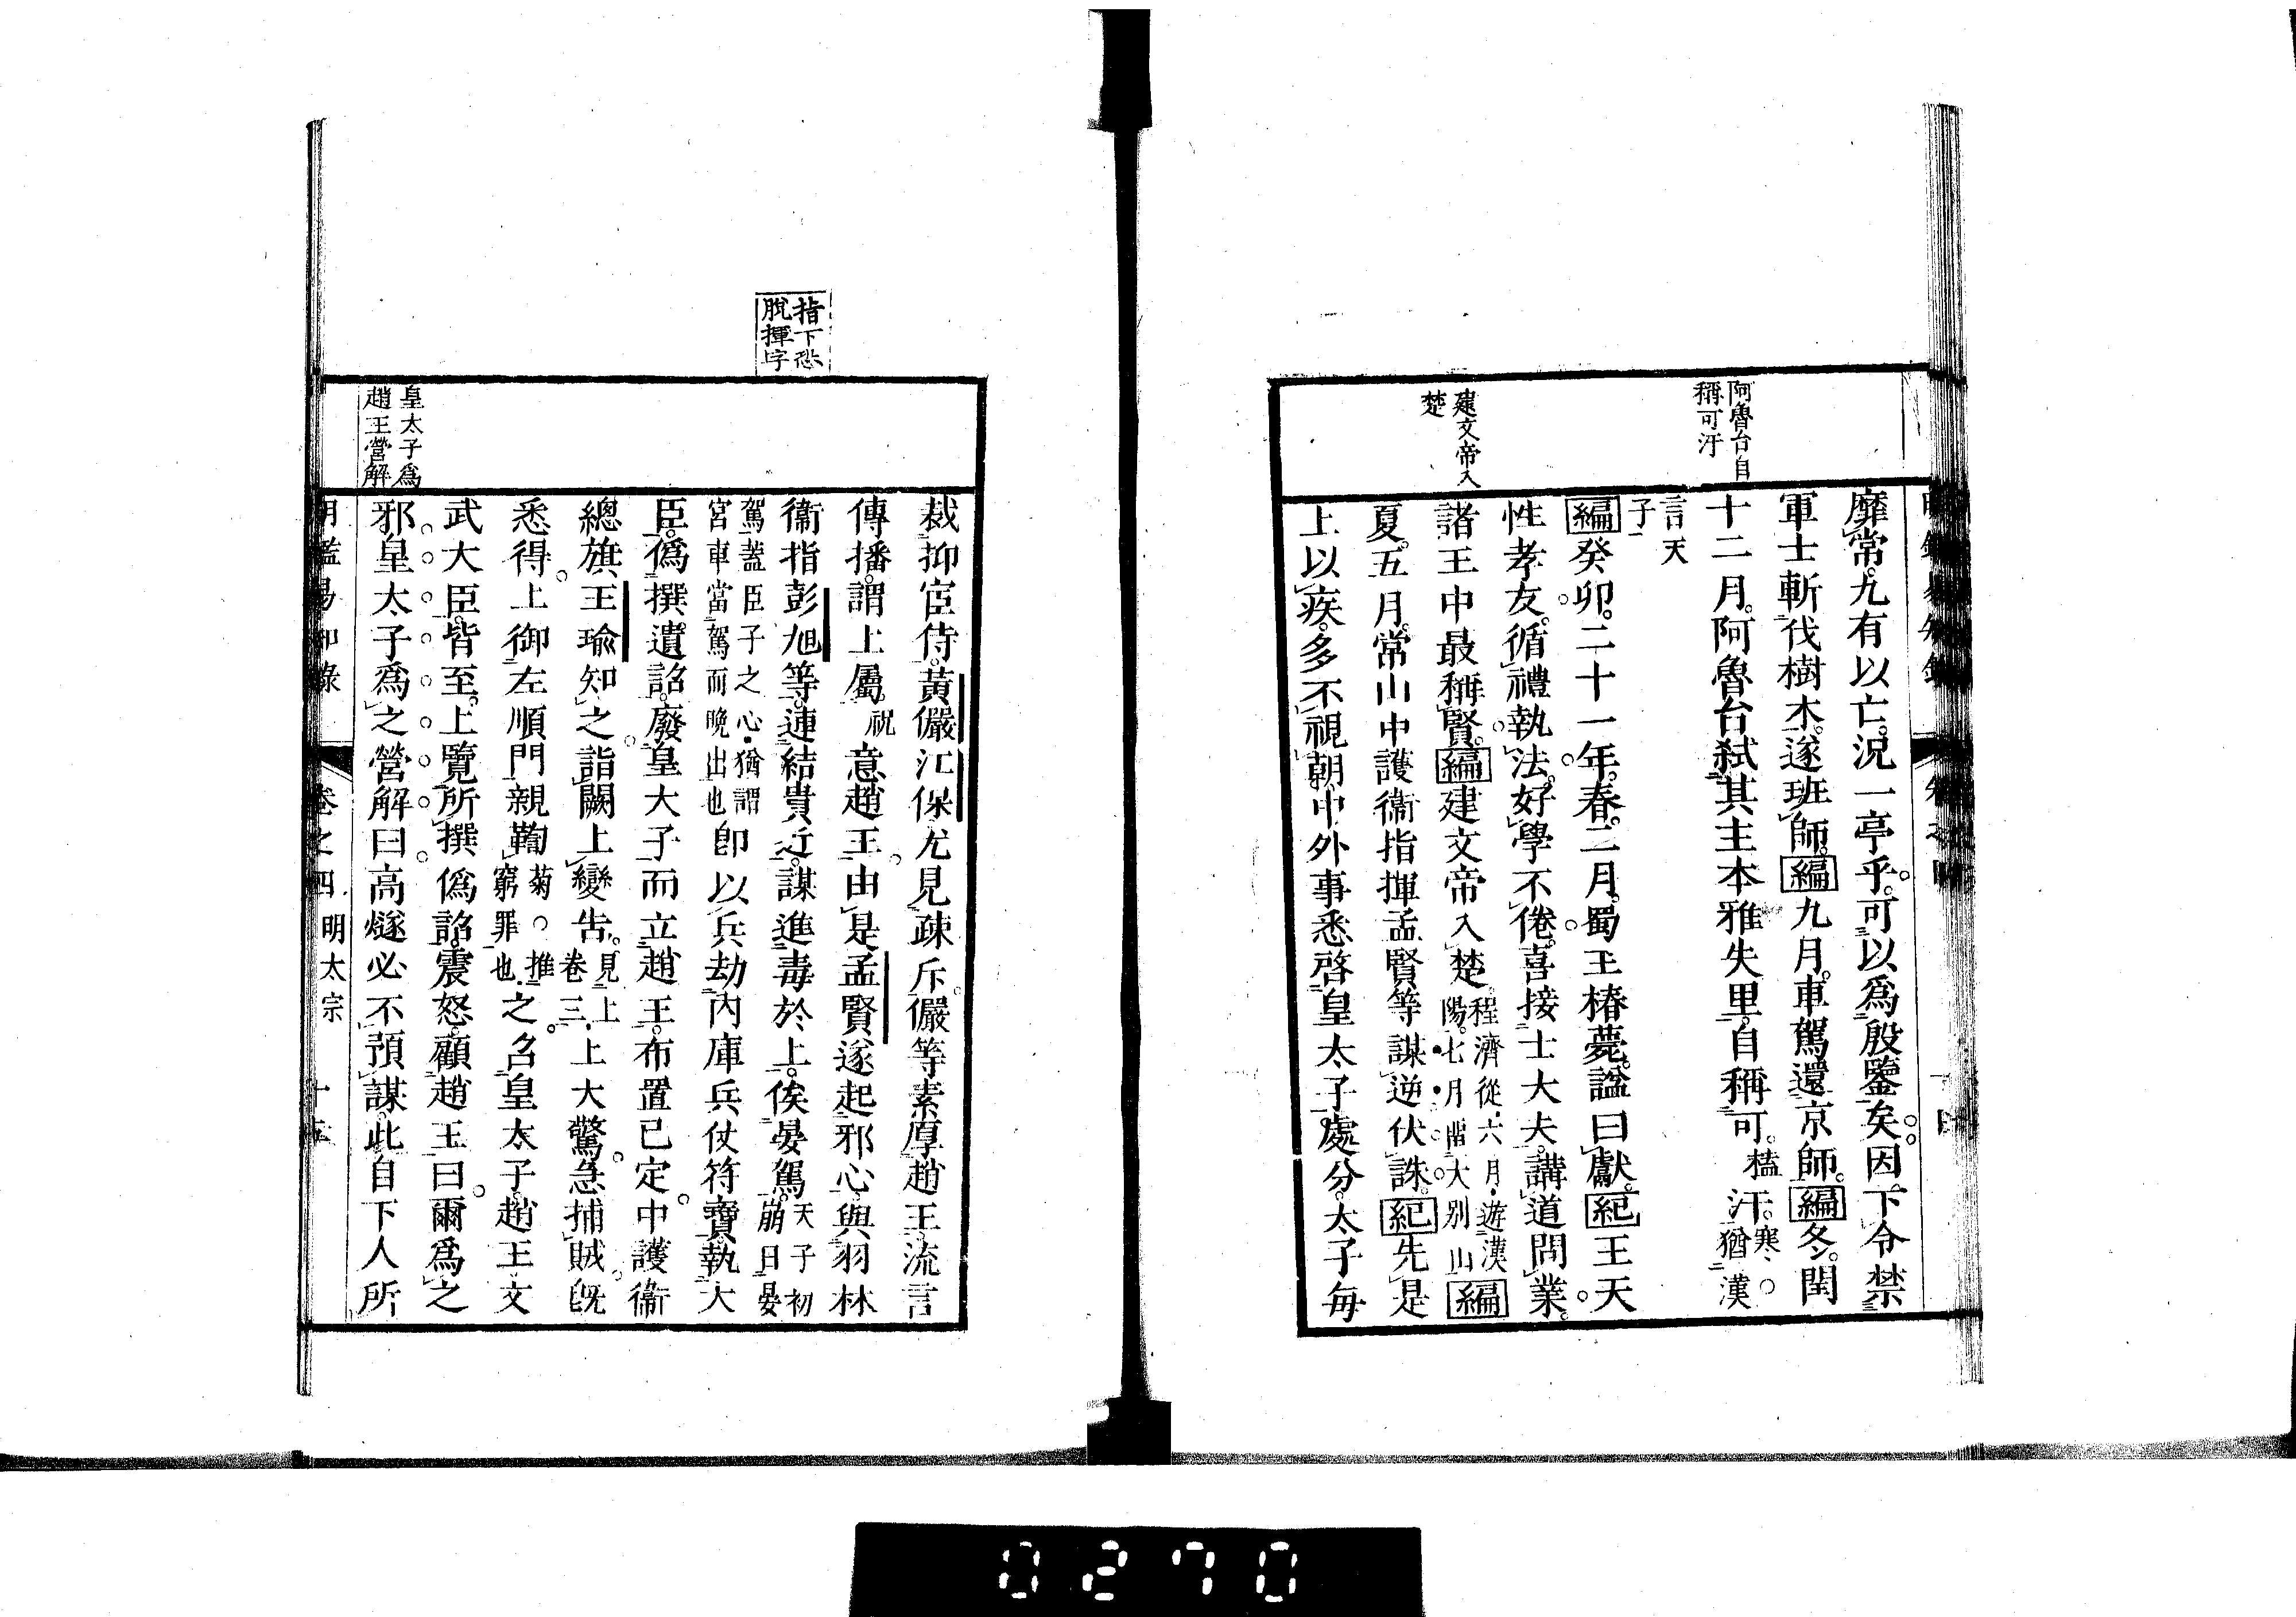 阿魯台自
稱可汗
建文帝入
楚
靡常九有以亡。況一亭乎。可以爲殷鑒矣。因下令禁
軍士斬伐樹木。遂班師。編九月。車駕還京師。編冬。閏
十二月。阿魯台弑其主本雅失里。自稱可。榼汗。寒、○猶漢
言天
子
編癸卯。二十一年。春。二月。蜀王椿薨。諡曰獻。紀王天
性孝友。循禮執法。好學不倦。喜接士大夫。講道問業。
諸王中最稱賢。編建文帝入楚。程濟從・六月・遊漢
陽。七月・大别山編
夏。五月。常山中護衞指揮孟賢等謀逆伏誅。紀先是
上以疾。多不視朝。中外事悉啓皇太子。處分。太子每
指下恐
脫揮字
皇太子爲
趙王營解
裁抑宦侍。黃儼江保尤見疎斥。儼等素厚趙王。流言
傳播。謂上屬。祝意趙王。由是孟賢遂起邪心。與羽林
衞指彭旭等。連結貴近。謀進毒於上。俟晏駕。天子初
崩曰晏
駕蓋臣子之心・猶謂
宮車當駕而晚出也卽以兵劫內庫兵仗符寶。執大
臣。僞撰遺詔。廢皇大子而立趙王。布置已定。中護衞
總旗王瑜知之。詣闕上變告。見上
卷三上大驚。急捕賊。旣
悉得。上御左順門。親鞫菊。○推
窮罪也之。召皇太子。趙王文
武大臣。皆至。上覽所撰僞詔。震怒。顧趙王曰。爾爲之
邪。皇太子爲之營解曰。高燧必不預謀。此自下人所
明鑑易知錄
卷之四
明太宗
十五
0270